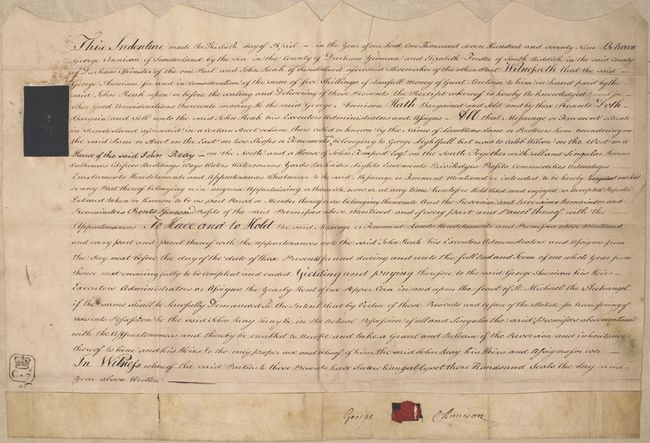 This Indenture made the Thirtieth day of April in the Year of our Lord One Thousand Seven Hundred and seventy Nine Between
George Annison of Sunderland by the Sea in the County of Durham Yeoman and Elizabeth Forster of South Biddick in the said County
of Durham Spinster of the one Part and John Reah of Sunderland aforesaid Shoemaker of the other Part Witnesseth that the said
George Annison for and in Consideration of the Sum of five Shillings of Lawfull money of Great Britain to him in hand paid by the
said John Reah upon or before the sealing and Delivering of these Presents the Receipt whereof is hereby Acknowledged and for
other Good Considerations thereunto moving He the said George Annison Hath Bargained and Sold and by these Presents Doth
Bargain and Sell unto the said John Reah his Executors Administrators and Assigns All that Messuage or Tenement situate
in Sunderland aforesaid in a certain Street or Lane there called or known by the Name of Lane or Lane boundering on
the said Lane or Street on the East on two Shops or Tenements belonging to George Lightfoot but now to Caleb Wilson on the West on a
House of the said John Reay on the North and a House of John Tempest Esqr. on the South Together with all and Singular Houses
Outhouses Edifices Buildings Ways Waters Watercourses Yards Backsides Lights Easements Priviledges Profits Commodities Advantages
Emoluments Hereditaments and Appurtenances Whatsoever to the said Messuage or Tenement Mentioned or intended to be hereby Bargained and Sold
or any Part thereof belonging or in anywise Appertaining or therewith now or at any time heretofore Held Used and enjoyed or accepted Reputed
Deemed taken or known to be as Part Parcel or Member thereof or as belonging thereunto And the Reversion and Reversions Remainder and
Remainders Rents Issues and Profits of the said Premisses above Mentioned and of every Part and Parcel thereof with the
Appurtenances To Have and to Hold the said Messuage or Tenement Lands Hereditaments and Premisses above Mentioned
and every part and parcel thereof with the Appurtenances unto the said John Reah his Executors Administrators and Assigns from
the day next before the day of the date of these Presents for and during and unto the full End and Term of one whole Year from
thence next ensuing fully to be Compleat and ended Yielding and paying therefore to the said George Annison his Heirs
Executors Administrators or Assigns the Yearly Rent of one Pepper Corn in and upon the feast of St. Michael the Archangel
if the same shall be Lawfully Demanded To the Intent that by Virtue of these Presents and by force of the Statute for transferring of
uses into Possession he the said John Reay may be in the Actual Possession of all and Singular the said Premisses above mentioned
with the Appurtenances and thereby be enabled to Accept and take a Grant and Release of the Reversion and inheritance
thereof to him and his Heirs to the only proper use and behoof of him the said John Reay his Heirs and Assigns for ever
In Witness whereof the said Parties to these Presents have Interchangably set their Hands and Seals the day and
Year above Written
George Annison